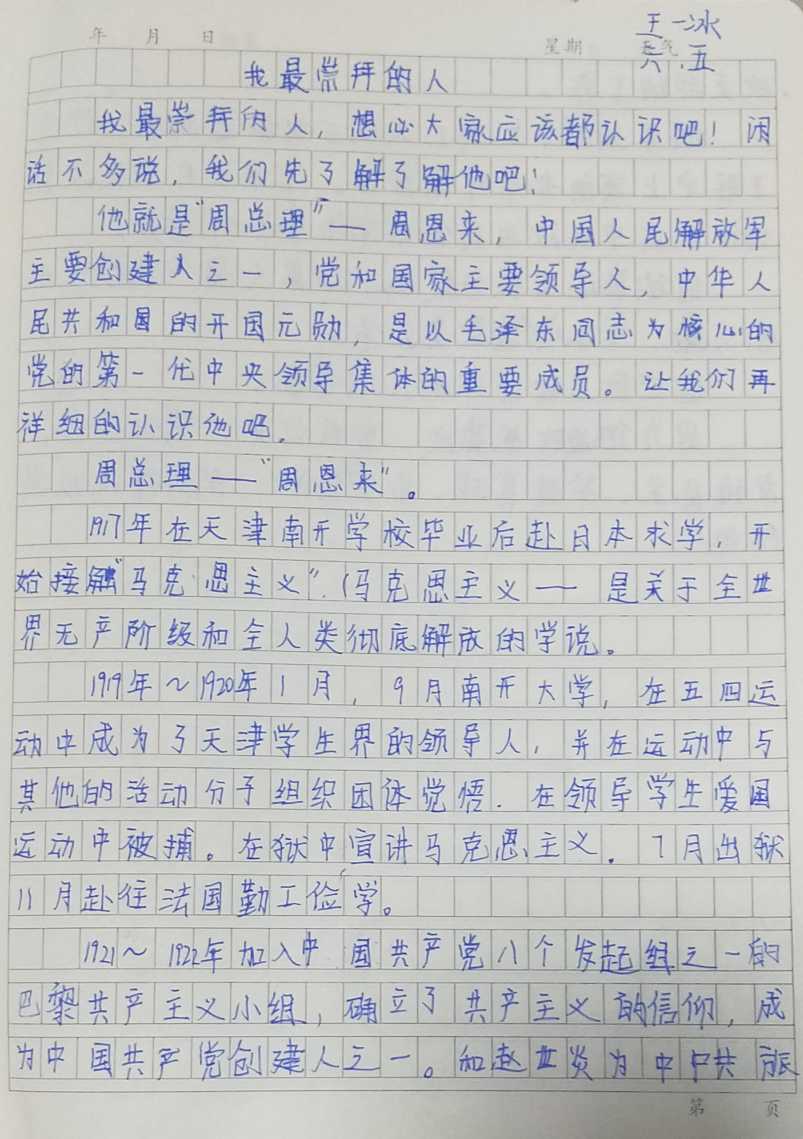 年 月 日
星期 天气
王一冰
六.五
我最崇拜的人
我最崇拜的人，想必大家应该都认识吧！闲
话不多说，我们先了解了解他吧！
他就是“周总理”——周恩来，中国人民解放军
主要创建人之一，党和国家主要领导人，中华人
民共和国的开国元勋，是以毛泽东同志为核心的
党的第一代中央领导集体的重要成员。让我们再
详细的认识他吧。
周总理——“周恩来”。
1917年在天津南开学校毕业后赴日本求学，开
始接触“马克思主义”.（马克思主义——是关于全世
界无产阶级和全人类彻底解放的学说。
1919年～1920年1月，9月南开大学，在五四运
动中成为了天津学生界的领导人，并在运动中与
其他的活动分子组织团体觉悟．在领导学生爱国
运动中被捕。在狱中宣讲马克思主义．7月出狱
11月赴往法国勤工俭学。
1921～1922年加入中国共产党八个发起组之一的
巴黎共产主义小组，确立了共产主义的信仰，成
为中国共产党创建人之一。和赵世炎为中中共旅
第 页